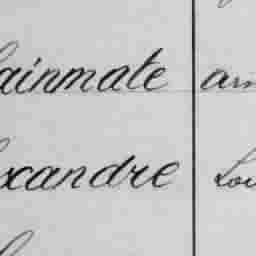 ainmate am
xandre Lou